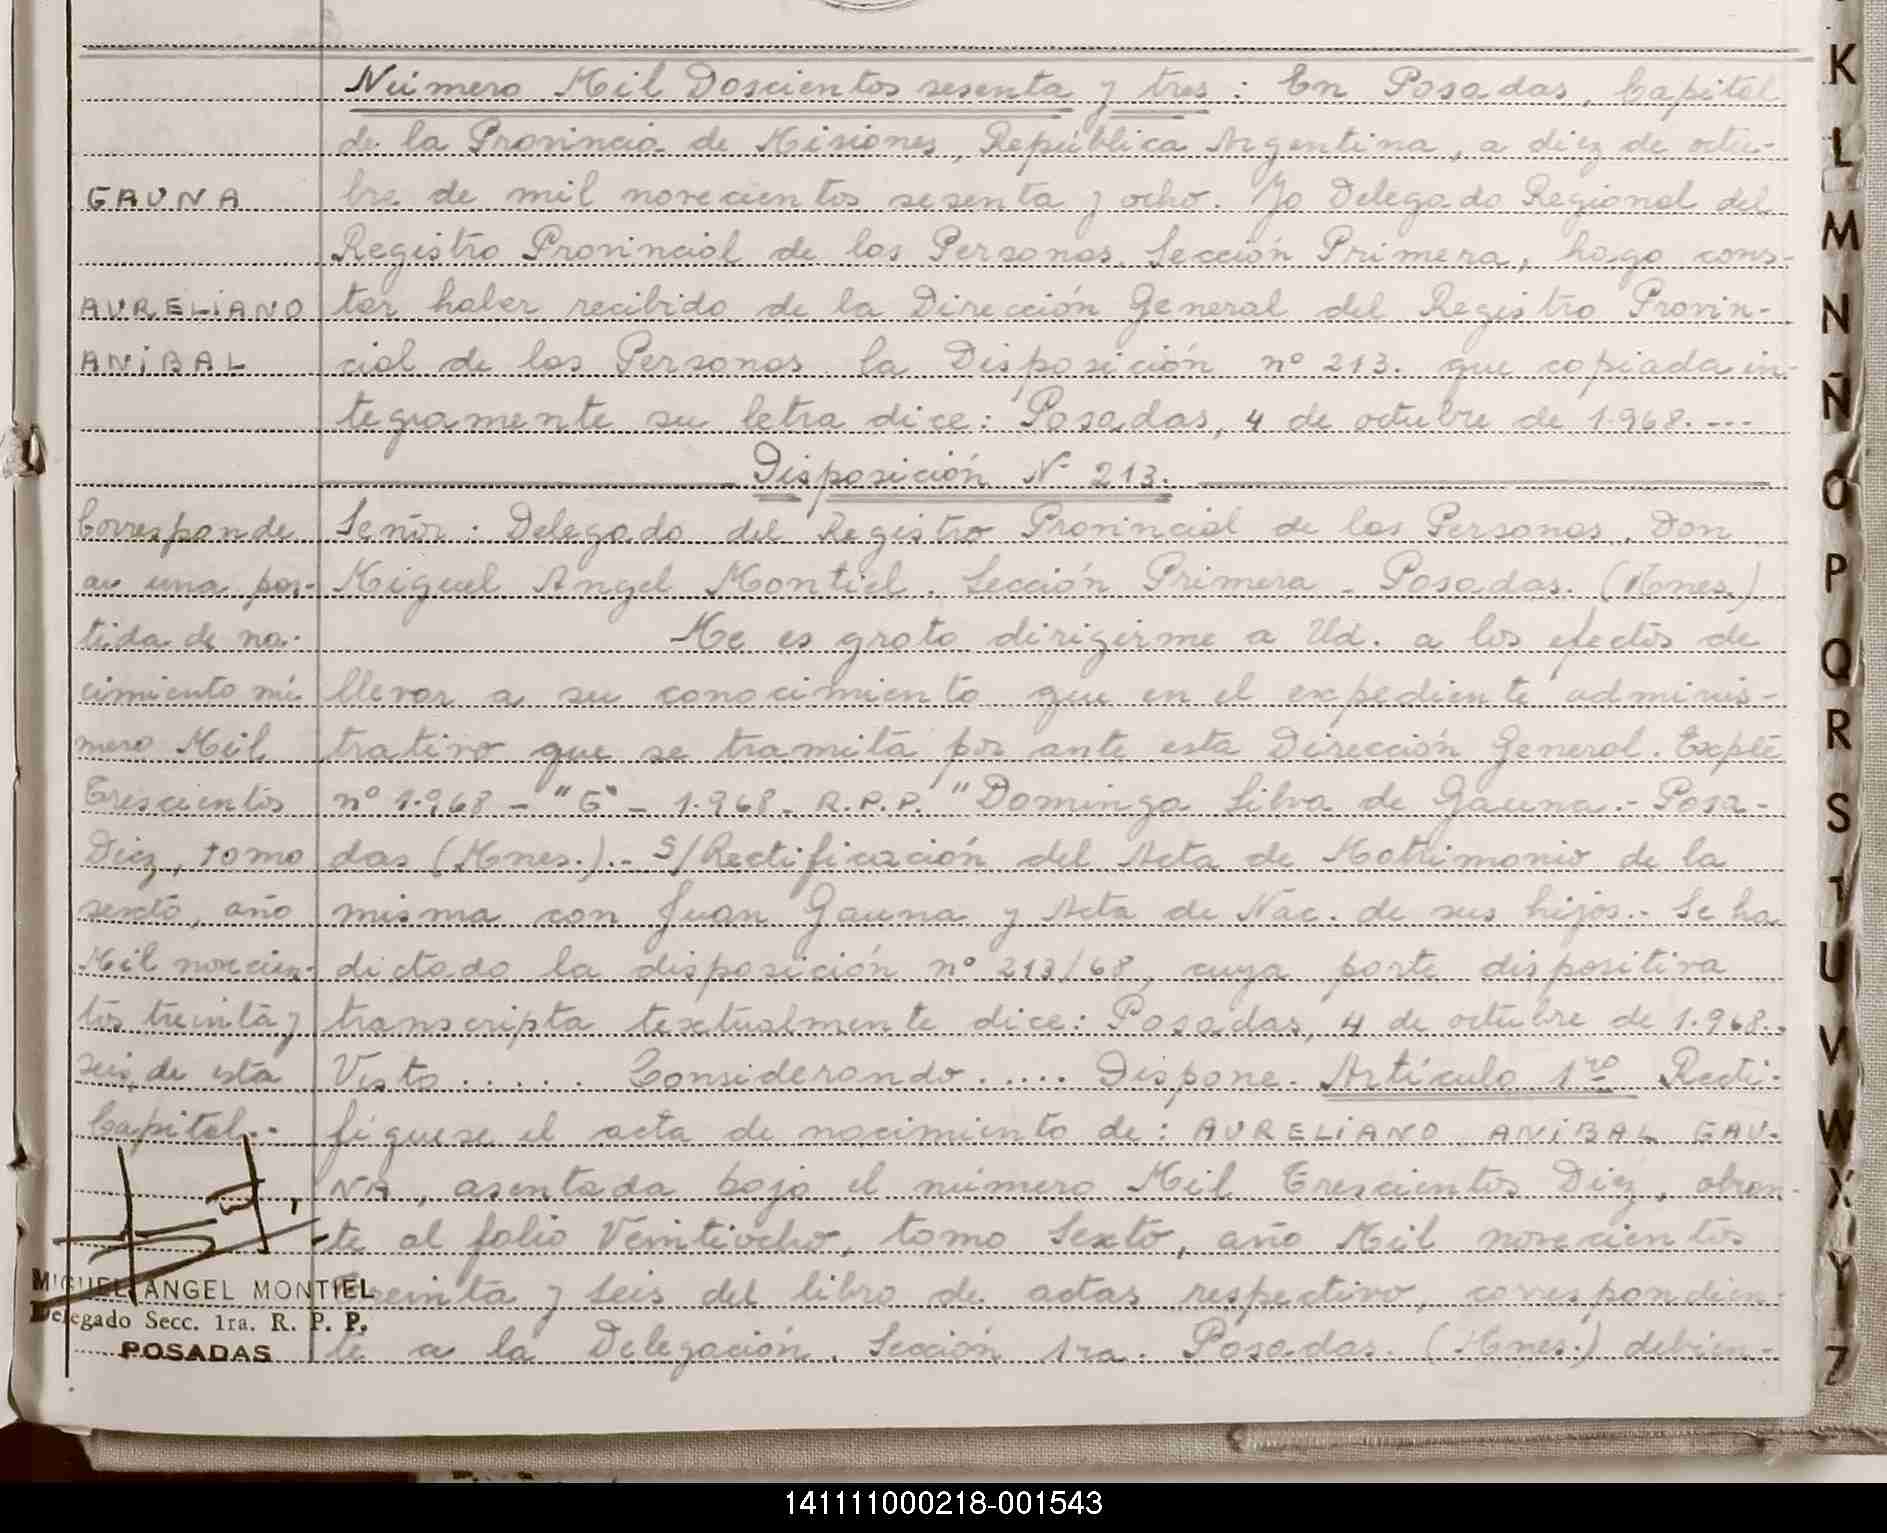 Número Mil Doscientos sesenta y tres : En Posadas, Capital
de la Provincia de Misiones, República Argentina, a diez de octu-
bre de mil novecientos sesenta y ocho. Yo Delegado Regional del
Registro Provincial de las Personas, Sección Primera, hago cons-
tar haber recibido de la Dirección General del Registro Provin-
cial de las Personas, la Disposición nº 213. que copiada ín-
tegramente su letra dice: Posadas, 4 de octubre de 1.968. ---
Disposición Nº 213.
Señor: Delegado del Registro Provincial de las Personas, Don
Miguel Angel Montiel. Sección Primera - Posadas. (Mnes.)
Me es grato dirigirme a Ud. a los efectos de
llevar a su conocimiento que en el expediente adminis-
trativo que se tramita por ante esta Dirección General. Expte
nº 1.968 - "G" - 1.968. R.P.P. "Dominga Silva de Gauna.- Posa-
das (Mnes.).- S/Rectificación del Acta de Matrimonio de la
misma con Juan Gauna y Acta de Nac. de sus hijos.- Se ha
dictado la disposición nº 213/68, cuya parte dispositiva
transcripta textualmente dice: Posadas, 4 de octubre de 1.968..
Visto ...... Considerando ..... Dispone. Artículo 1ro Recti-
fíquese el acta de nacimiento de: AURELIANO ANIBAL GAU-
NA, asentada bajo el número Mil Trescientos Diez, obran-
te al folio Veintiocho, tomo Sexto, año Mil novecientos
treinta y Seis del libro de actas respectivo, correspondien-
te a la Delegación, Sección 1ra. Posadas. (Mnes.) debien-
GAUNA
AURELIANO
ANIBAL
Corresponde
a una par-
tida de na-
cimiento nú-
mero Mil
Trescientos
Diez, tomo
sexto, año
Mil novecien-
tos treinta y
seis, de esta
Capital.-
MIGUEL ANGEL MONTIEL
Delegado Secc. 1ra. R. P. P.
POSADAS
K
L
M
N
Ñ
O
P
Q
R
S
T
U
V
W
X
Y
Z
141111000218-001543